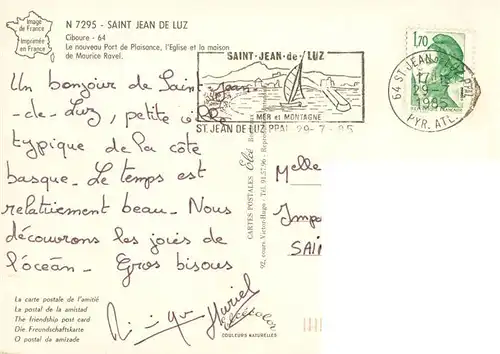 Image
de France
Imprimée
en France
N 7295 - SAINT JEAN DE LUZ
Ciboure - 64
Le nouveau Port de Plaisance, l'Eglise et la maison
de Maurice Ravel.
SAINT-JEAN-de-LUZ
MER et MONTAGNE
ST JEAN DE LUZ PPAL 29-7-85
1,70
64 ST JEAN
29-7
1985
PYR. ATL.
Un bonjour de Saint-Jean-
-de-Luz, petite ville
typique de la côte
basque. Le temps est
relativement beau. Nous
découvrons les joies de
l'océan. Gros bisous
Muriel
CARTES POSTALES Elcé
92, cours Victor-Hugo - Tél. 91.57.96
Melle
Impo
SAIN
La carte postale de l'amitié
La postal de la amistad
The friendship post card
Die Freundschaftskarte
O postal da amizade
Elcécolor
COULEURS NATURELLES